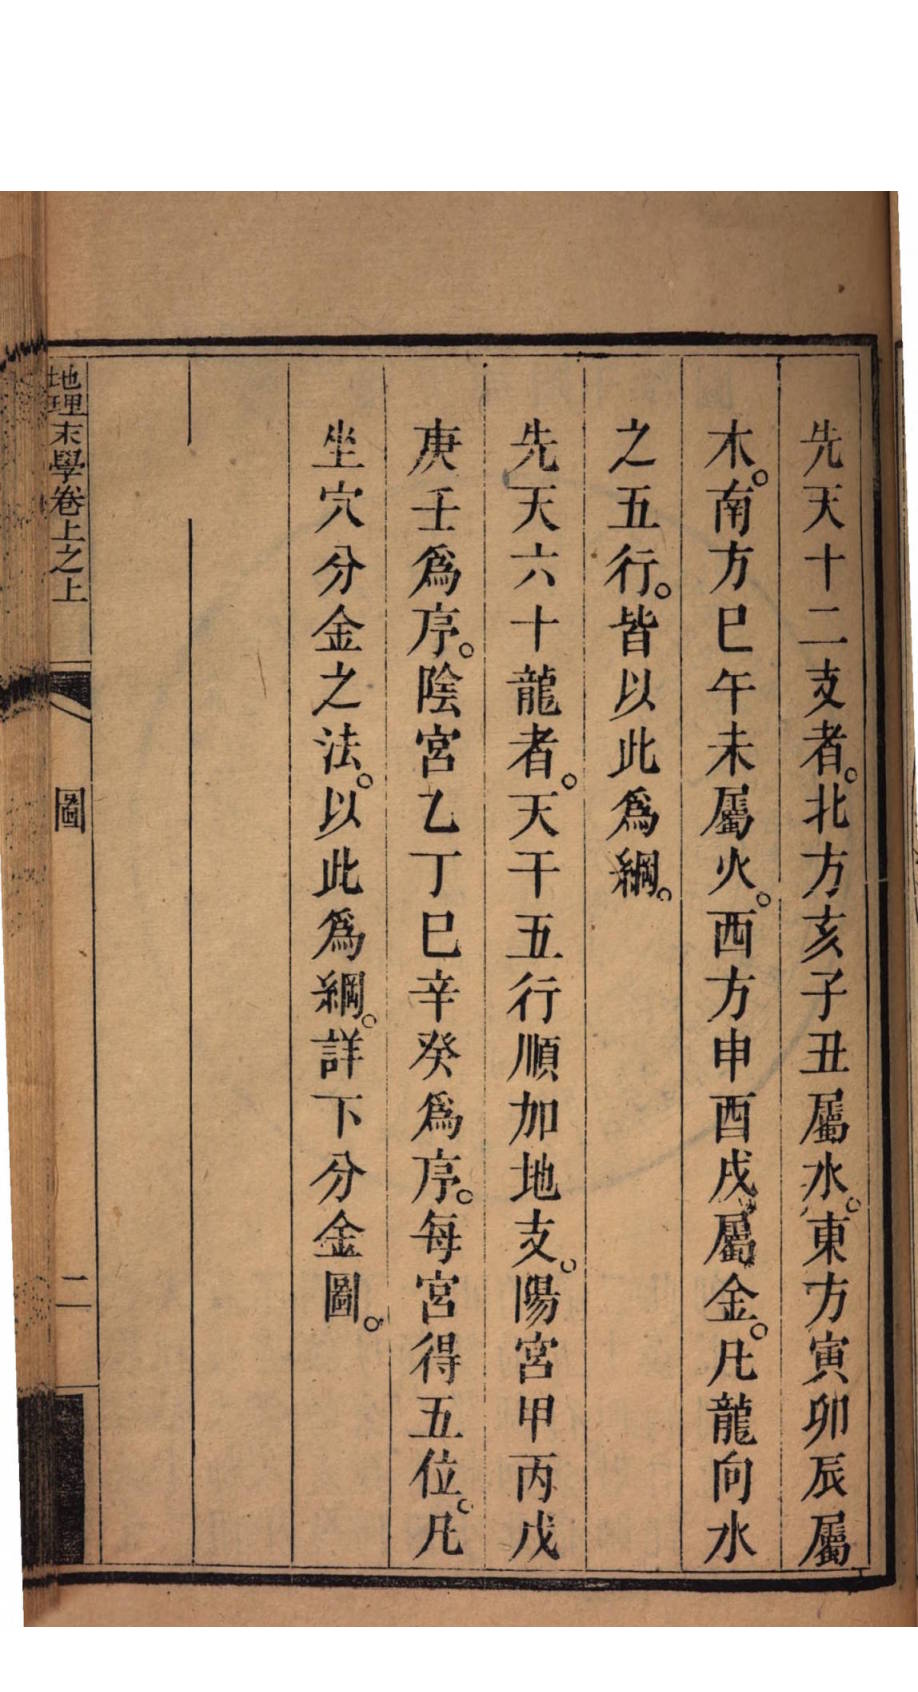 先天十二支者。北方亥子丑屬水。東方寅卯辰屬
木。南方巳午未屬火。西方申酉戌屬金。凡龍向水
之五行。皆以此爲綱。
先天六十龍者。天干五行順加地支。陽宮甲丙戊
庚壬爲序。陰宮乙丁巳辛癸爲序。每宮得五位。凡
坐穴分金之法。以此爲綱。詳下分金圖。
地理末學卷上之上
圖
二